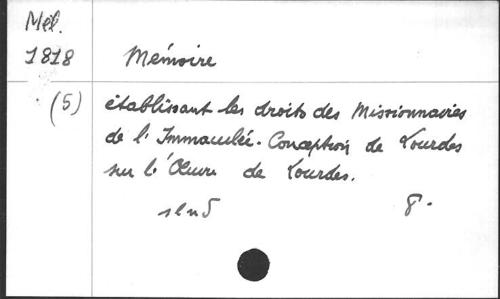 Mél.
1818
Mémoire
(5)
établissant les droits des Missionnaires
de l'Immaculée-Conception de Lourdes
sur l'Œuvre de Lourdes.
s l n d
8°